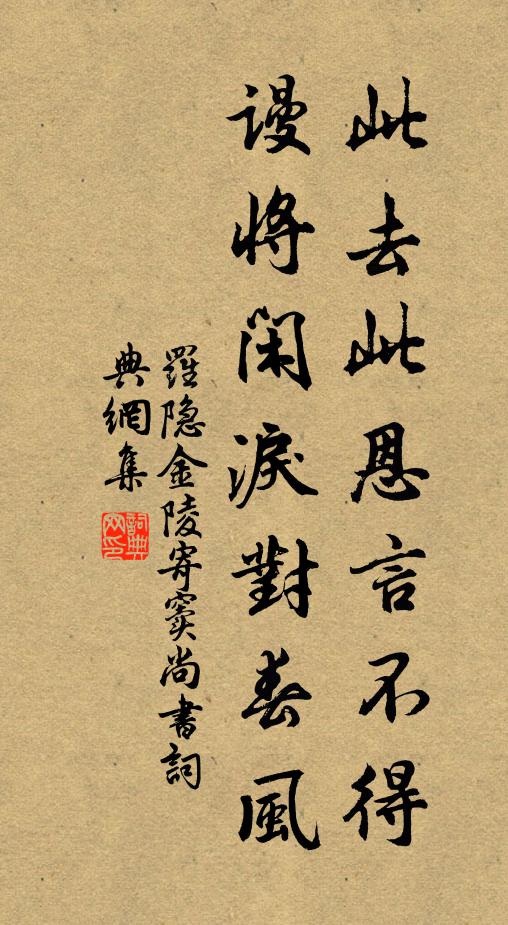 此去此恩言不得
謾將閑淚對春風
羅隐金陵寄窦尚書詞
典網集
詞典
网印